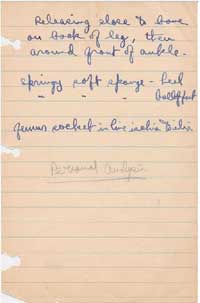 Releasing close to bone
on back of leg, then
around front of ankle.
springy soft sponge - heel
" " " ball of foot
femur socket in line ischia
Personal Analysis